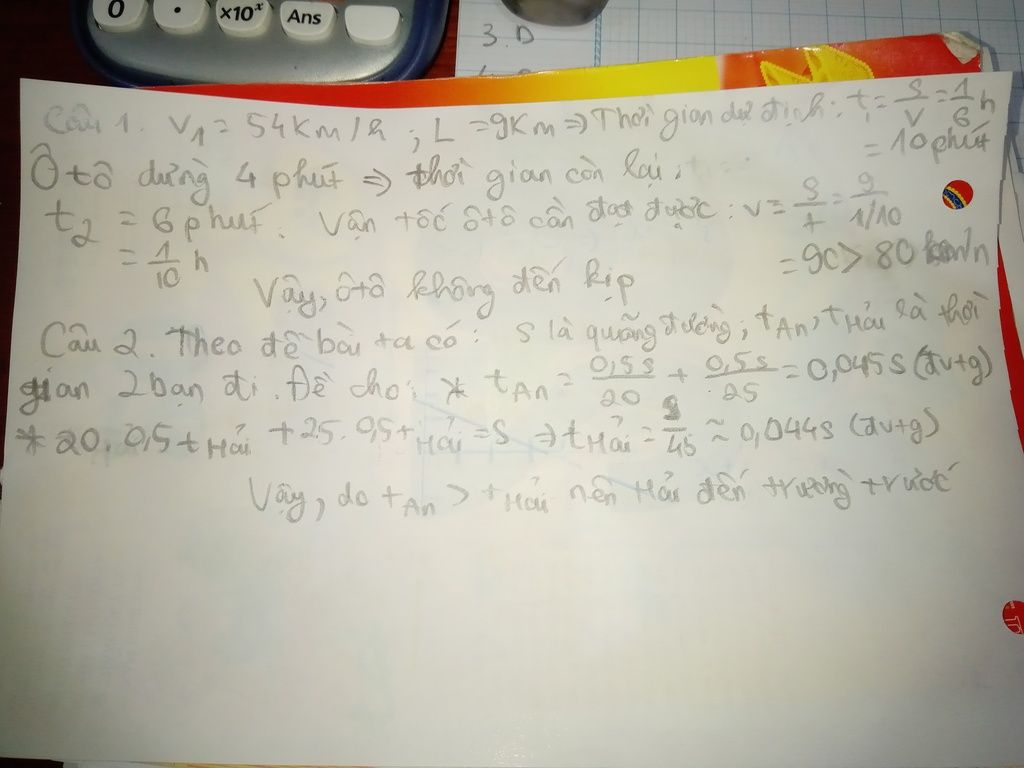 0 · ×10ˣ Ans
3.D
Câu 1. V₁ = 54Km/h ; L = 9Km ⇒ Thời gian dự định: t₁ = S/V = 1/6 h
= 10 phút
Ô tô dừng 4 phút ⇒ thời gian còn lại:
t₂ = 6 phút. Vận tốc ô tô cần đạt được: v = S/t = 9/1/10
= 1/10 h
= 90 > 80 km/h
Vậy, ô tô không đến kịp
Câu 2. Theo đề bài ta có: S là quãng đường, tAn, tHải là thời
gian 2 bạn đi. Đề cho: * tAn = 0,5s/20 + 0,5s/25 = 0,045s (đv+g)
* 20. 0,5tHải + 25. 0,5tHải = S ⇒ tHải = S/45 ≈ 0,044s (đv+g)
Vậy, do tAn > tHải nên Hải đến trường trước